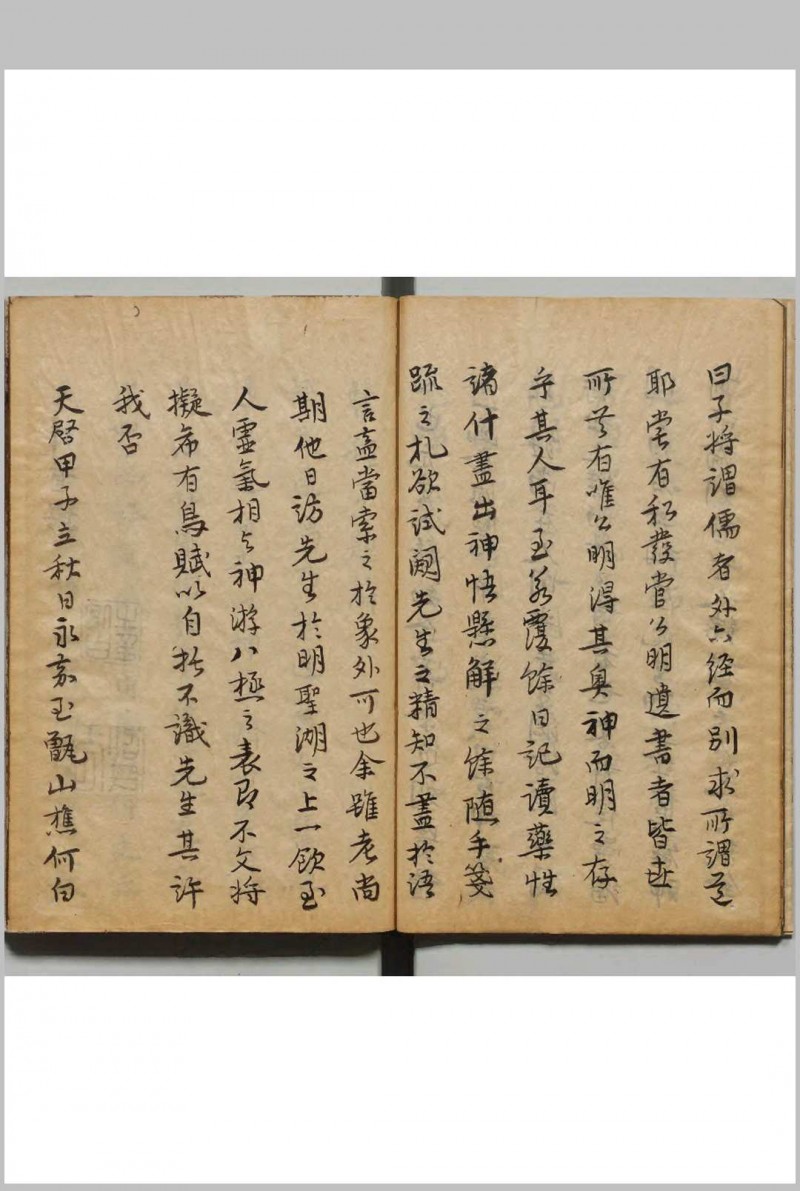 曰子将謂儒者外六經而別求所謂道
耶嘗有私發管公明遺書者皆世
所共有唯公明得其奥神而明之存
乎其人耳至若覆餘日記讀藥性
諸什盡出神悟懸解之餘随手箋
疏之札欲試闚先生之精知不盡於語
言盖當索之於象外可也余雖老尚
期他日訪先生於明聖湖之上一飲至
人靈氣相与神游八極之表即不文将
擬希有鳥賦以自托不識先生其許
我否
天啓甲子立秋日永嘉玉甑山樵何白